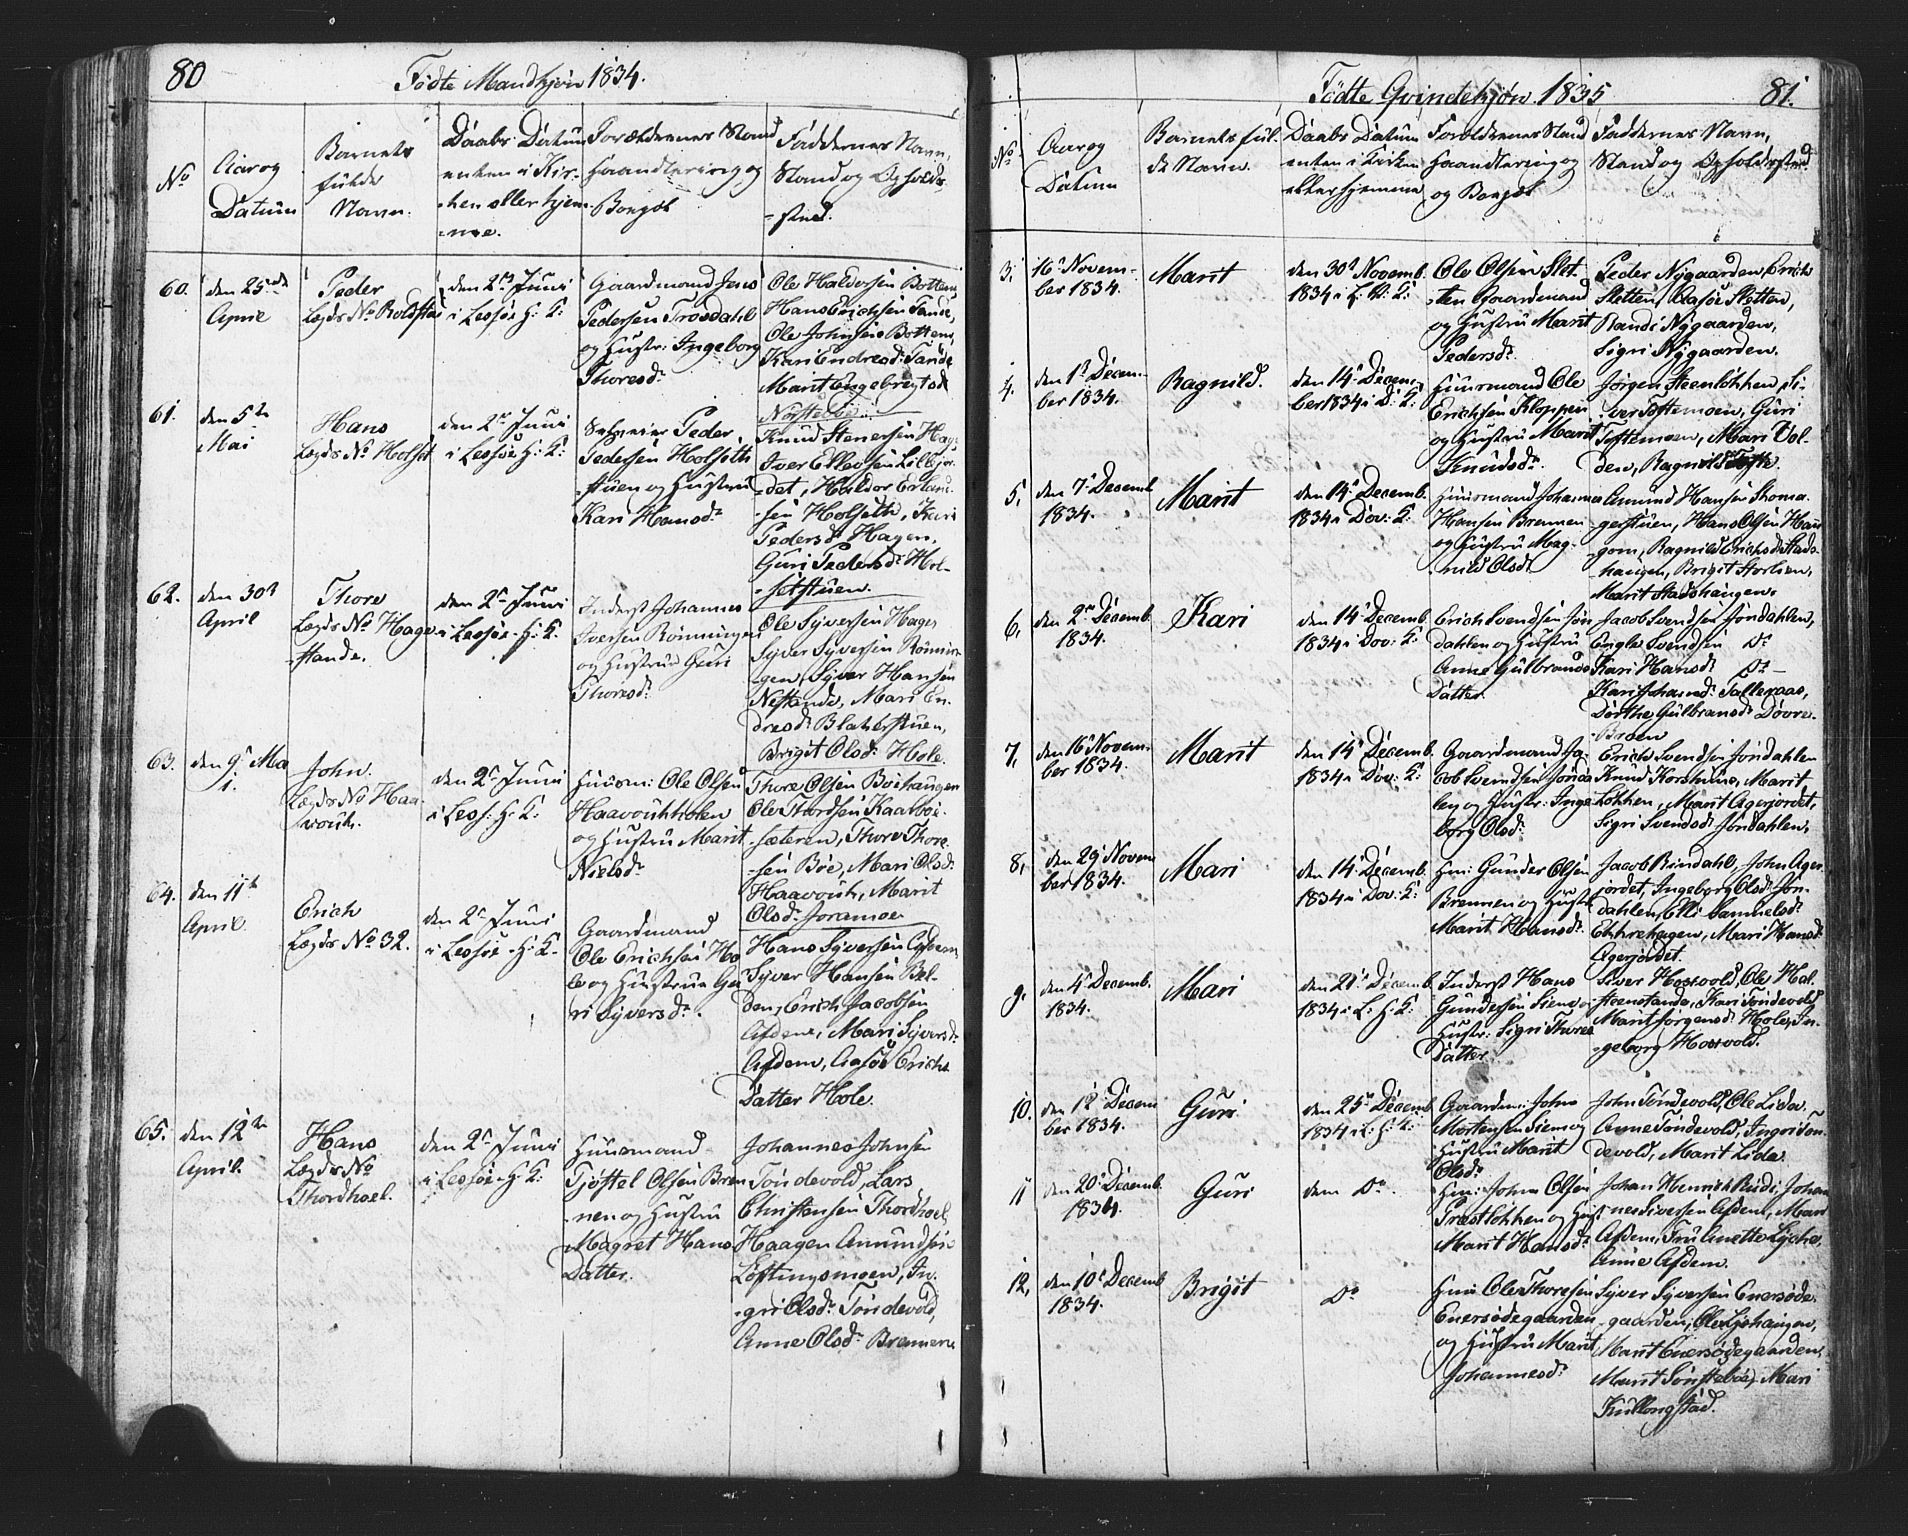 80
Födte Mandkjön 1834.
No
Aar og
Datum
Barnets
fulde
Navn.
Daabs Datum
enten i Kir-
-ken eller hjem-
-me.
Forældrenes Stand
Haandtering og
Bopæl
Faddernes Navn,
Stand og Opholds-
-sted.
60.
den 25de
April
Peder
Lægds No
den 2den Juni
i Lessöe H: K:
Gaardmand Jens
Pedersen Trosdahl
og Hustr: Ingeborg
Thoresdr
Ole Haldorsen Botten,
Hans Erichsen Tande,
Ole Johnsen Botten,
Kari Endresd: Tande
Marit Engebregtsd
Norsteböe.
61.
den 5te
Mai
Hans
Lægds No Holset
den 2n Juni
i Lessöe H: K:
Peder
Pedersen Holseth-
-stuen og Hustru
Kari Hansdr
Knud Stenersen Hag-
Iver Ellevsen Lillejor-
-det, Haldor Erland-
-sen Holseth, Kari
Pedersdr Hagen,
Guri Pedersdr Hol-
-setstuen.
62.
den 30te
April
Thore
Lægds No Hage-
-stande.
den 2n Juni
i Lessöe H: K.
Inderst Johannes
Iversen Rönningen
og Hustrue Guri
Thoresdr
Ole Syversen Hage,
Syver Syversen Rönnin-
gen, Syver Hansen
Nestande, Mari En-
dresdr Blakerstuen,
Brigit Olsdr Hole.
63.
den 9e Ma
i.
John.
Lægds No Haa-
den 2n Juni
i Less: H: K:
Huusm: Ole Olsen
og Hustru Marit
Nielsdr
Thore Olsen Böehaugen
Ole Thordsen Kaatböe-
-sæteren, Thore Thore-
-sen Böe, Mari Olsdr
Marit
Olsdr Joramoe
64.
den 11te
April
Erich
Lægds No 32.
den 2n Juni
i Lessöe H: K-
Gaardmand
Ole Erichsen Ho
le og Hustrue Gu
ri Syversdr.
Hans Syversen Afdem,
Syver Hansen Bel-
den, Erich Jacobsen
Afdem, Mari Syversdr
Afdem, Aasöe Erichs
Datter Hole.
65.
den 12te
April.
Hans
Lægds No
Thordhoel.
den 2n Juni
i Lessöe H: K:
Huusmand
Tjöstel Olsen Bren
-nen og Hustru
Magret Hans
Datter.
Johannes Johnsen
Töndevold, Lars
Christensen Thordhoel,
Haagen Amundsen
Löftingsmoen, In-
-gri Olsdr Töndevold,
Anne Olsdr Brennen
81.
Födte Qvindekjön 1835
No
Aar og
Datum
Barnets ful-
de Navn.
Daabs Datum
enten i Kirken
eller hjemme
Forældrenes Stand
Haandtering og
og Bopæl
Faddernes Navn,
Stand og Opholdssted.
3,
16e Novem-
ber 1834.
Marit
den 30te Novemb.
1834 i L: H: K:
Ole Olsen Slet-
-ten Gaardmand
og Hustru Marit
Pedersdr
Peder Nygaarden, Erich
Sletten, Aasöe Sletten,
Randi Nygaarden,
Sigri Nygaarden.
4.
den 1e Decem-
ber 1834.
Ragnild.
den 14e Decem-
ber 1834 i D: K:
Huusmand Ole
Erichsen Kloppen
og Hustru Marit
Knudsdr
Jörgen Steenlökken, Si-
ver Toftemoen, Guri
Toftemoen, Mari Vol-
den, Ragnild Tofte.
5,
den 7e Decemb
1834.
Marit
den 14e Decemb.
1834 i Dov: K:
Huusmand Johannes
Hansen Brennen
og Hustru Mag-
-nild Olsdr
Amund Hansen
Hans Olsen
Ragnild Erichsdr Stads-
-haugen, Brigit Storlien,
Marit Stadshaugen.
6,
den 2n Decemb.
1834.
Kari
den 14e Decemb
1834 i Dov: K:
Erich Svendsen Jön
dahlen og Hustru
Anne Gulbrands
Datter
Jacob Svendsen Jöndahlen,
Engle Svendsen Do
Kari Hansdr Do
Kari Johansdr Talleraas,
Dorthe Gulbransdr Dovre-
-Broen
7,
den 16e Novem-
ber 1834.
Marit
den 14e Decemb.
1834 i Dov: K:
Gaardmand Ja-
cob Svendsen Jönda
len og Hustr: Inge
borg Olsdr
Erich Svendsen Jöndahlen
Knud Korsluus, Marit
Lökken, Marit Agerjordet,
Sigri Svendsdr Jöndahlen,
8,
den 29e Novem
ber 1834.
Mari
den 14e Decemb.
1834 i Dov: K:
Hm: Gunder Olsen
Brennen og Hustr
Marit Hansdr
Jacob Rindahl, John Ager
jordet, Ingeborg Olsdr Jön-
dahlen, Elli Samuelsdr
Mari Hansdr
Agerjordet
9.
den 4e Decemb.
1834.
Mari
den 21e Decemb.
1834 i L: H: K:
Inderst Hans
Gundersen Siem og
Hustr: Sigri Thores
Datter
Siver Hosvold, Ole Hal-
steenstande, Kari Töndevold
Marit Jörgensdr Hole, In-
-geborg Hosvold.
10.
den 12e Decem
ber 1834.
Guri
den 25e Decemb
1834 i L: H: K:
Gaardm: John
Mortensen Siem og
Hustru Marit
Olsdr
John Töndevold, Ole Lide,
Anne Töndevold, Ingri Tön-
devold, Marit Lide.
11
den 20e Decemb.
1834.
Guri
dem Do.
Hm: John Olsen
Præstlökken og Hust
Marit Hansdr
Johan Henrich Johan
nes Siversen Afdem, Mari
Afdem, Fru Anette Lyche,
Anne Afdem.
12,
den 10e Decemb
1834.
Brigit
Do
Hm: Ole Thoresen
Enersödegaarden
og Hustru Marit
Johannesdr
Syver Syversen Enersöde-
-gaarden, Ole Ljöhaugen,
Marit Enersödegaarden,
Marit Sönsteböe, Mari
Kullongstad.